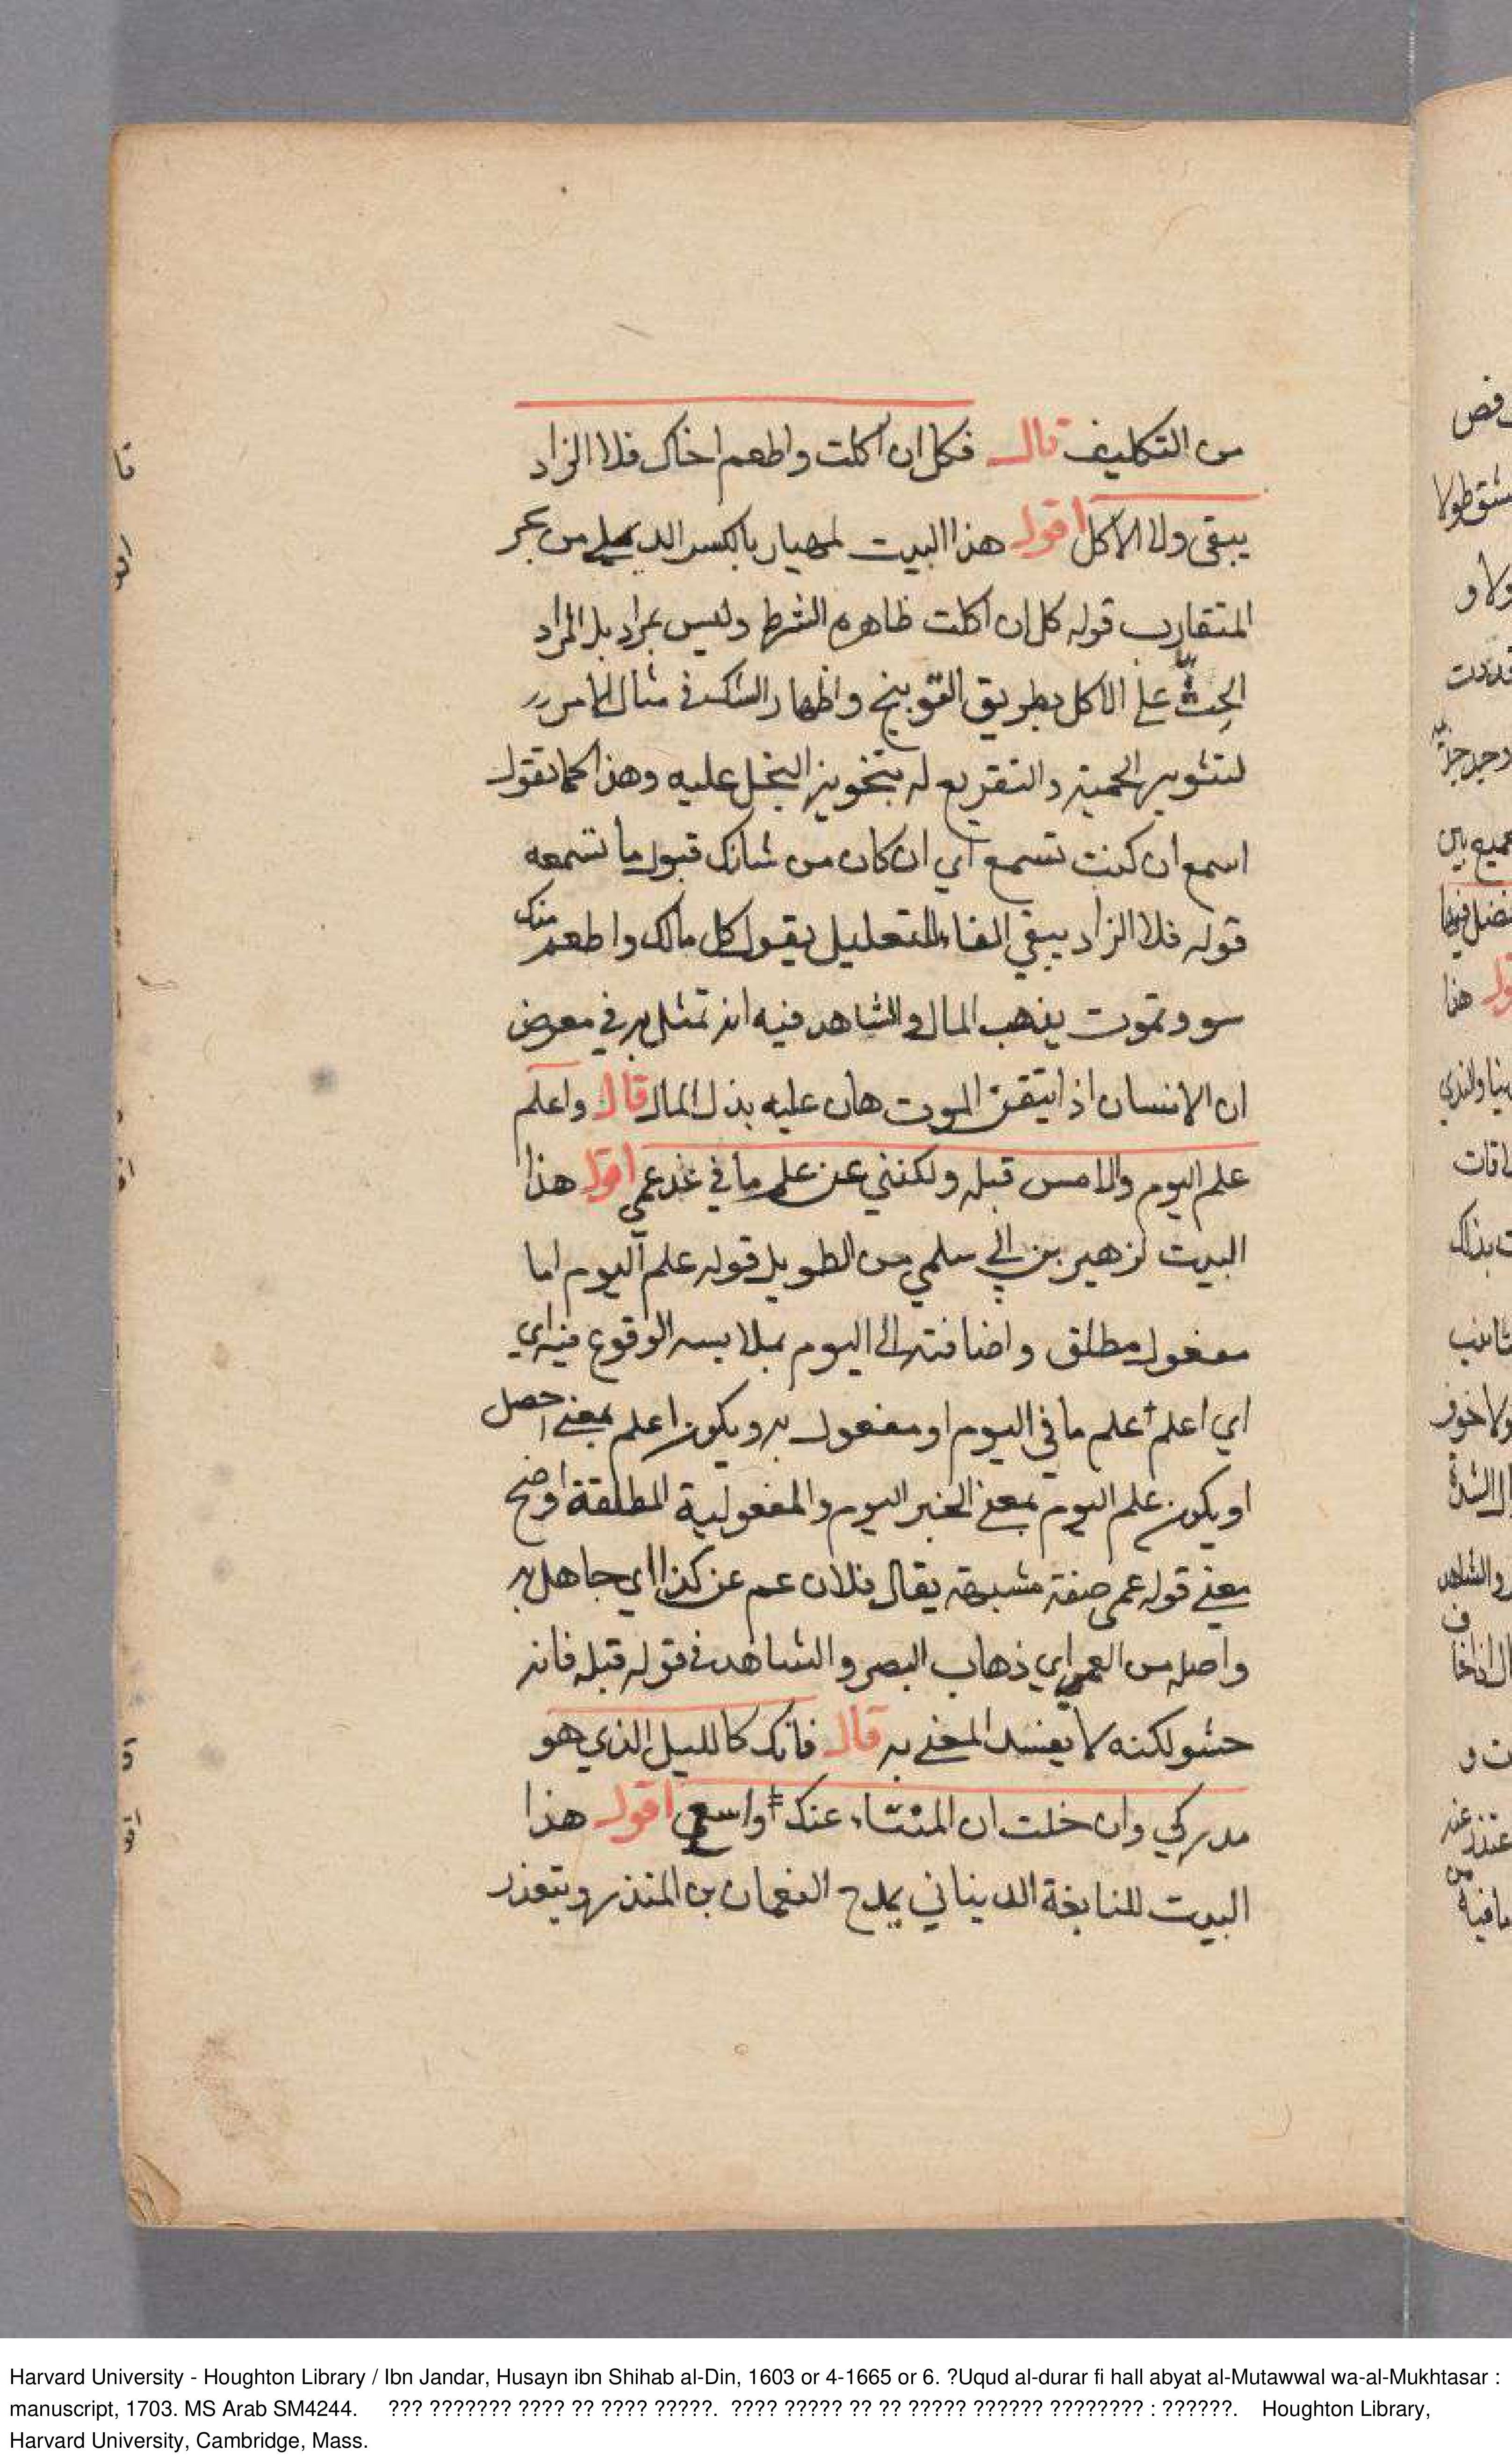 من التكليف قال فكل ان اكلت واطعم اخاك فلا الزاد
يبقى ولا الاكل اقول هذا البيت لمهيار بالكسر الديملي من بحر
المتقارب قوله كل ان اكلت ظاهره الشرط وليس بمراد بل المراد
الحثّ على الاكل بطريق التوبيخ واظهار الشك في مثال الامر
لتثوير الحمية والتقريع له بتجويز البخل عليه وهذا كما تقول
اسمع ان كنت تسمع اي ان كان من شانك قبول ما تسمعه
قوله فلا الزاد يبقي الفاء للتعليل يقول كل مالك واطعم منك
سو وتموت يذهب المال والشاهد فيه انه تمثل به في معرض
ان الانسان اذا تيقن الموت هان عليه بذل المال قال واعلم
علم اليوم والامس قبله ولكنني عن علم ما في غد عمي اقول هذا
البيت لزهير بن ابي سلمي من الطويل قوله علم اليوم اما
مفعول مطلق واضافته الى اليوم بملابسه الوقوع فيه اي
اي اعلم علم ما في اليوم او مفعول به ويكون اعلم بمعنى احصل
او يكون علم اليوم بمعنى الخبر اليوم والمفعولية المطلقة اوضح
معنى قوله عمي صفة مشبهة يقال فلان عم عن كذا اي جاهل به
واصله من العمي اي ذهاب البصر والشاهد في قوله قبله فانه
حشو لكنه لا يفسد المعنى به قال فانك كالليل الذي هو
مدركي وان خلت ان المنتاء عنك واسع اقول هذا
البيت للنابغة الذبياني يمدح النعمان بن المنذر ويتعذر
Harvard University - Houghton Library / Ibn Jandar, Husayn ibn Shihab al-Din, 1603 or 4-1665 or 6. ?Uqud al-durar fi hall abyat al-Mutawwal wa-al-Mukhtasar :
manuscript, 1703. MS Arab SM4244. ??? ??????? ???? ?? ???? ?????. ???? ????? ?? ?? ????? ?????? ???????? : ??????. Houghton Library,
Harvard University, Cambridge, Mass.